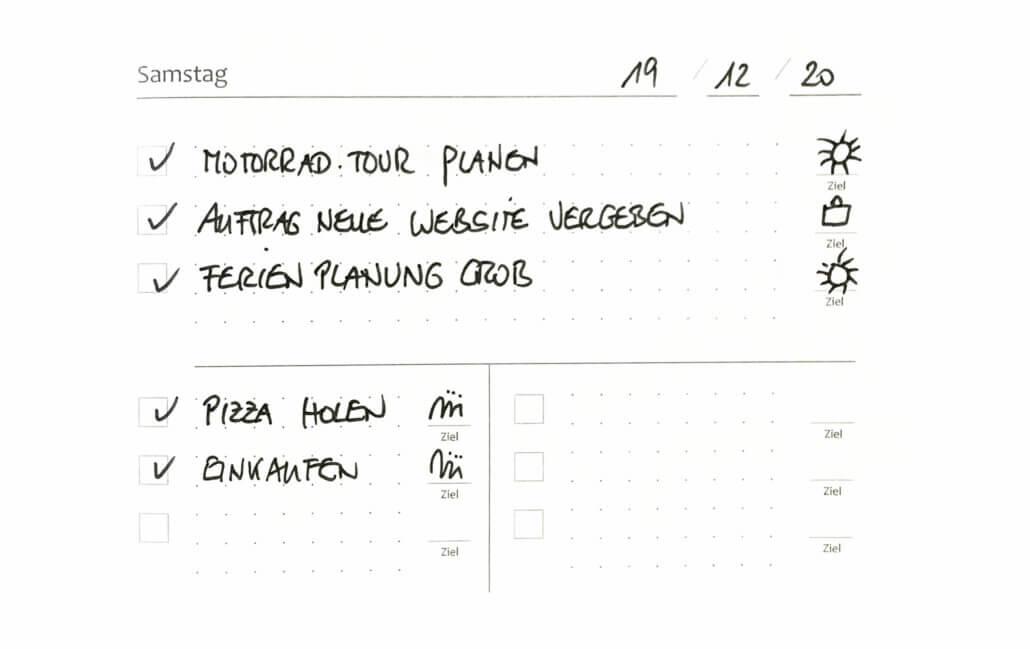 Samstag 19 / 12 / 20
MOTORRAD. TOUR PLANEN
Ziel
AUFTRAG NEUE WEBSITE VERGEBEN
Ziel
FERIEN PLANUNG GROB
Ziel
PIZZA HOLEN
Ziel
Ziel
EINKAUFEN
Ziel
Ziel
Ziel
Ziel